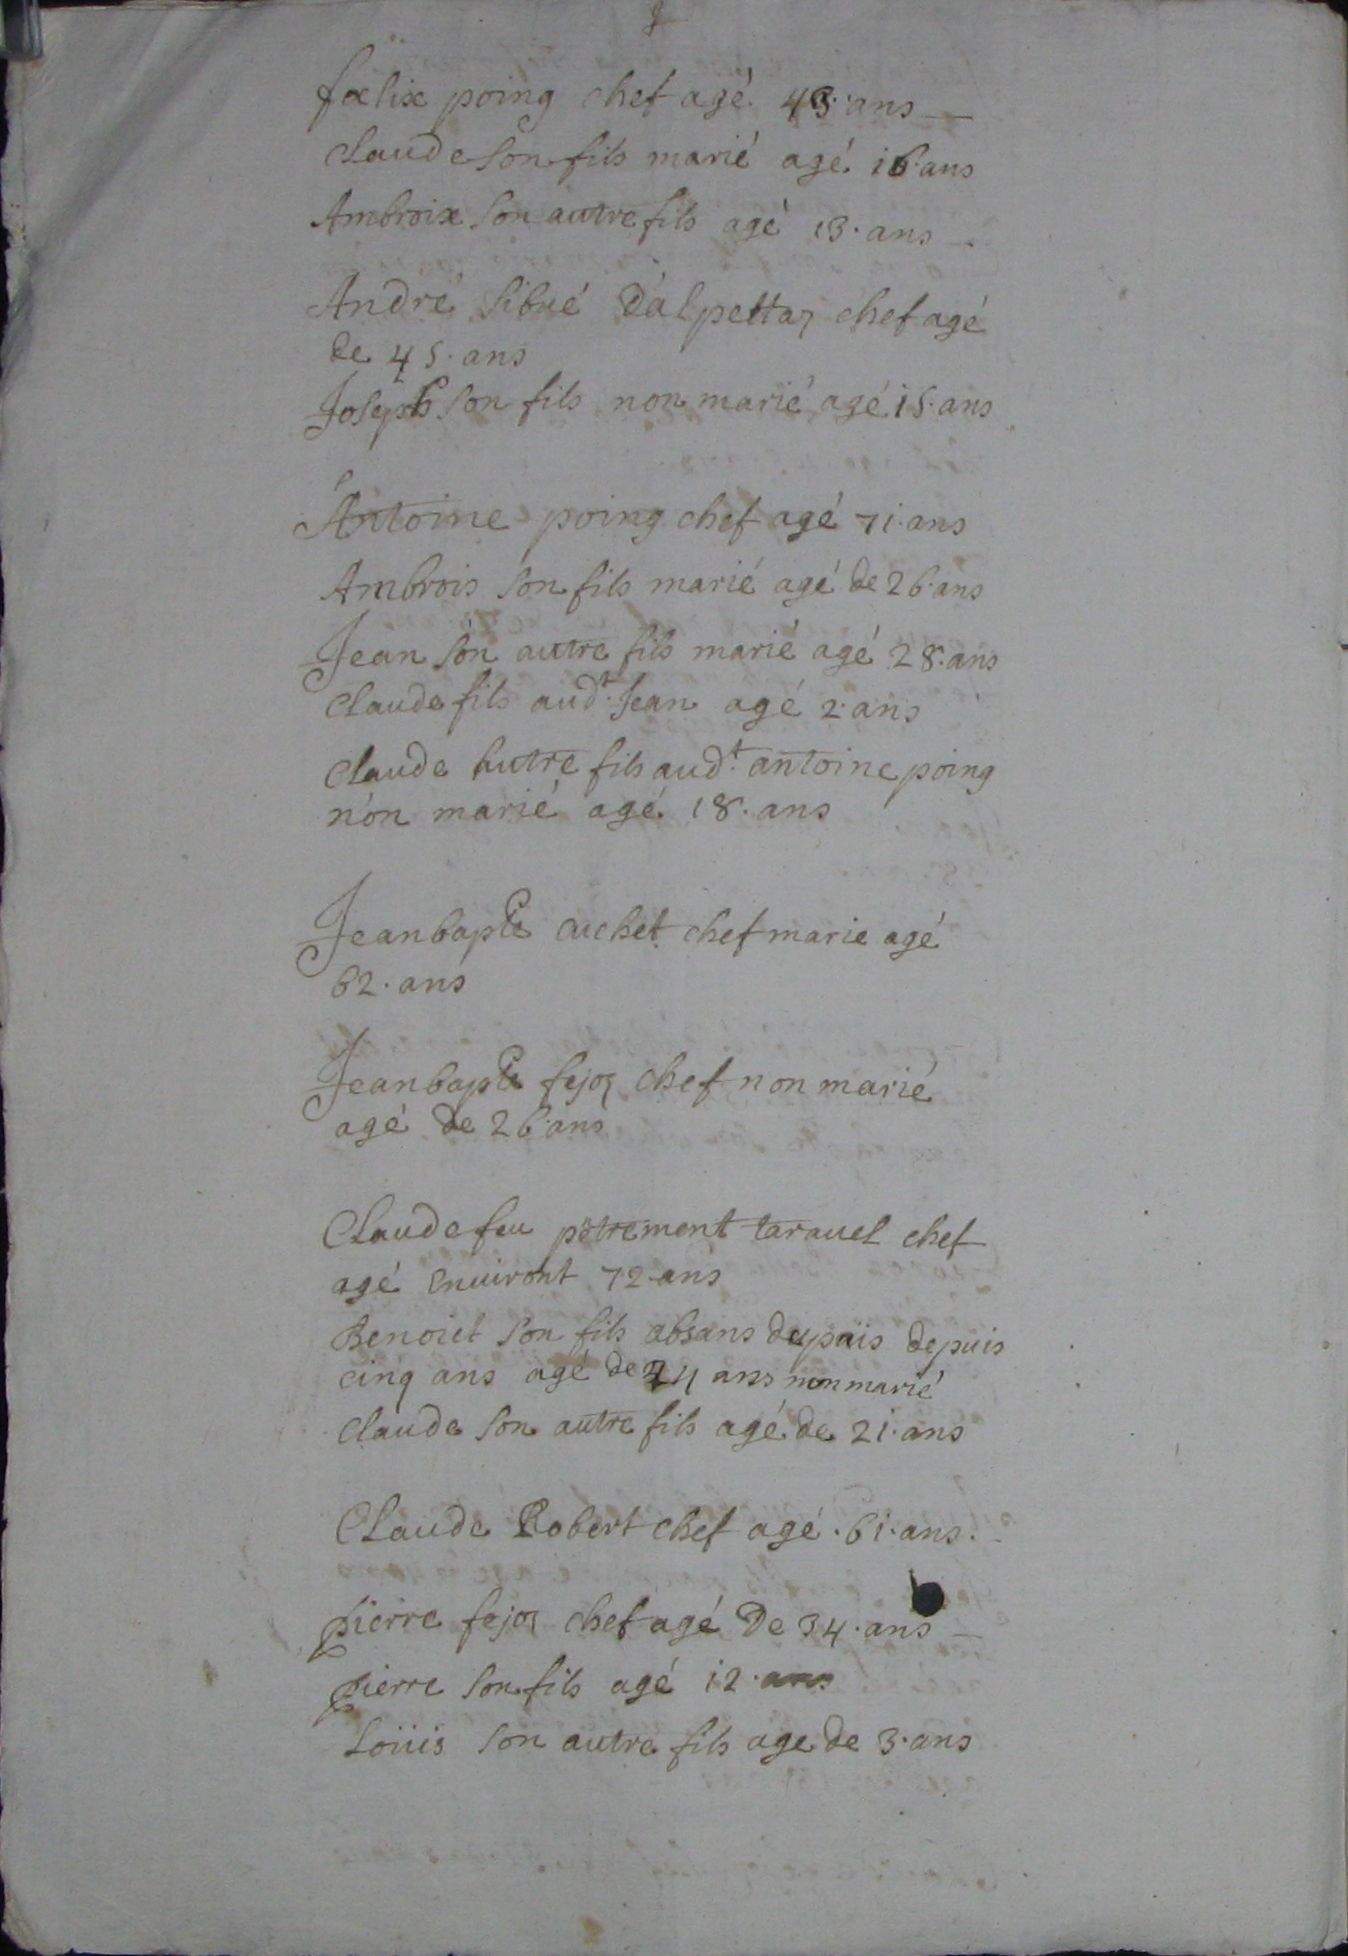 fœlix poing chef agé 43· ans
Claude son fils marié agé 16· ans
Ambroix son autre fils agé 13· ans
André sibué dalpettaz chef agé
de 45· ans
Joseph son fils non marié agé 15· ans
Antoine poing chef agé 71· ans
Ambrois son fils marié agé de 26· ans
Jean son autre fils marié agé 28· ans
Claude fils aud.t Jean agé 2· ans
Claude autre fils aud.t antoine poing
non marié agé 18· ans
Jean bapte cuchet chef marie agé
62· ans
Jean bapte fejoz chef non marié
agé de 26· ans
Claude feu pétrement taravel chef
agé environt 72· ans
Benoiet son fils absans du païs depuis
cinq ans agé de 24 ans non marié
Claude son autre fils agé de 21· ans
Claude Robert chef agé ·61· ans·
pierre fejoz chef agé De 34· ans
pierre son fils agé 12· ans
Loüis son autre fils age de 3· ans